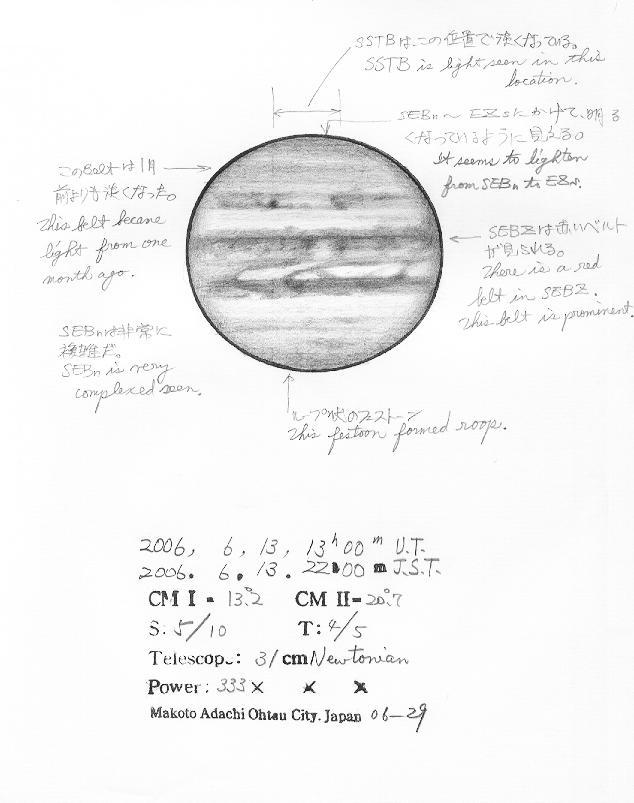 SSTBは、この位置で淡くなっている。
SSTB is light seen in this
location.
SEBn〜EZsにかけて、明る
くなっているように見える。
It seems to lighten
from SEBn to EZs.
このBeltは1月
前よりも淡くなった。
This belt became
light from one
month ago.
SEBZは赤いベルト
が見られる。
There is a red
belt in SEBZ.
This belt is prominent.
SEBnは非常に
複雑だ。
SEBn is very
complexed seen.
ループ状のフェストーン
This festoon formed roop.
2006, 6, 13, 13h00m U.T.
2006. 6. 13. 22h00m J.S.T.
CM I = 13.°2 CM II = 20.°7
S: 5/10 T: 4/5
Telescope: 31cm Newtonian
Power: 333× × ×
Makoto Adachi Ohtsu City. Japan 06-29